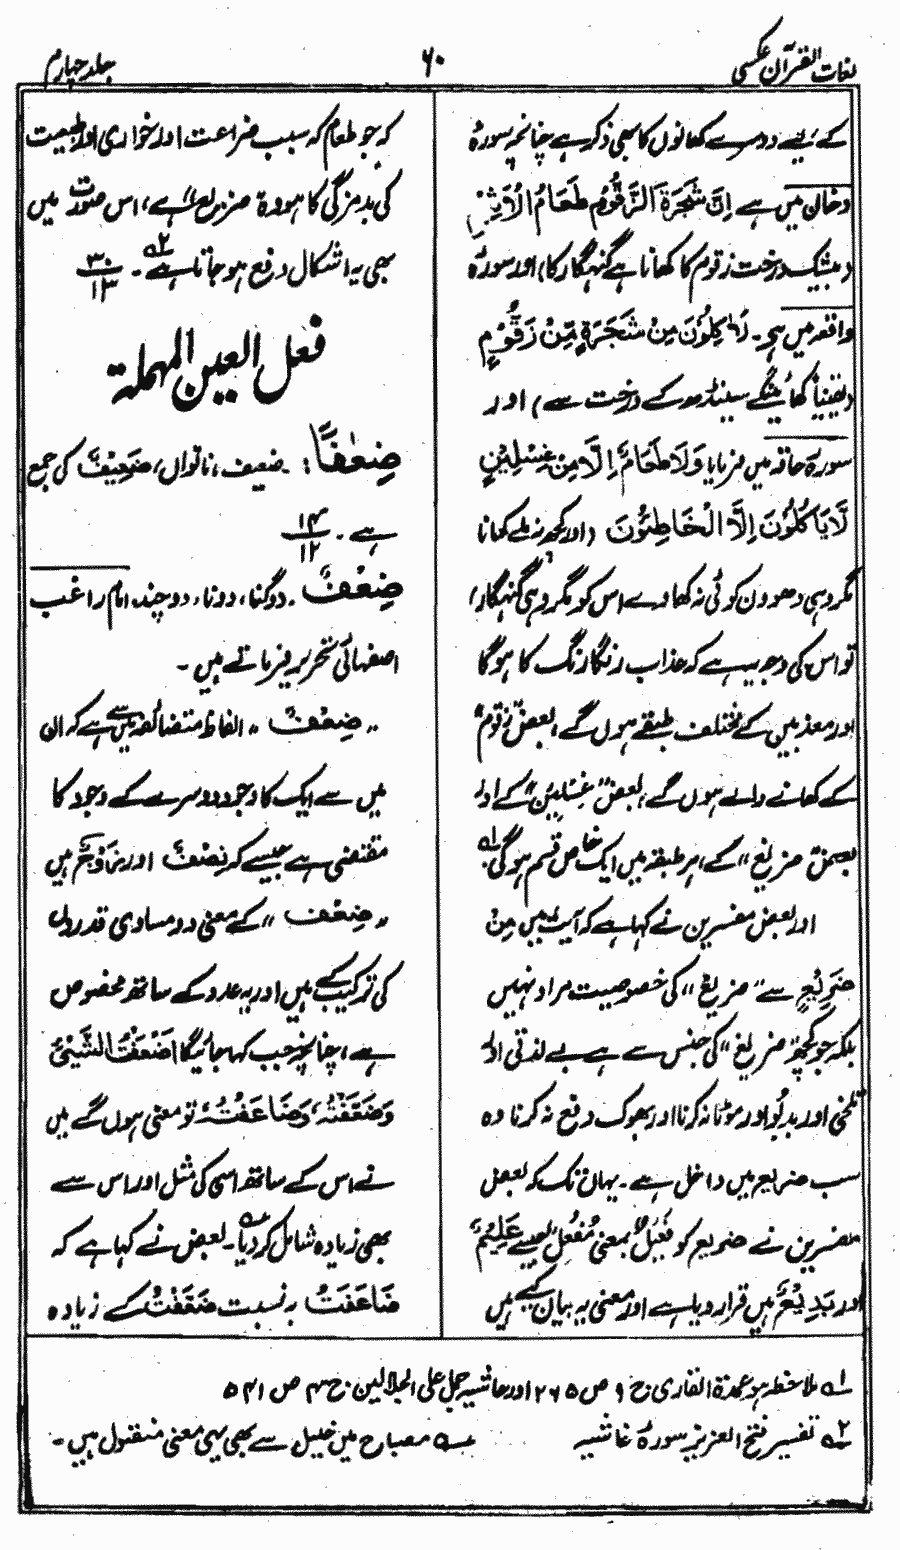 لغات القرآن عکسی
۶۰
جلد چہارم
کے لیے دوسرے کھانوں کا بھی ذکر ہے چنانچہ سورۂ
دخان میں ہے اِنَّ شَجَرَۃَ الزَّقُّوْمِ طَعَامُ الْاَثِیْمِ
(بیشک درخت زقوم کا کھانا ہے گنہگار کا) اور سورۂ
واقعہ میں ہے۔ لَاٰکِلُوْنَ مِنْ شَجَرَۃٍ مِّنْ زَقُّوْمٍ
(یقیناً کھائینگے سینڈھ کے درخت سے) اور
سورۃ حاقہ میں فرمایا وَلَا طَعَامٌ اِلَّا مِنْ غِسْلِیْنٍ
لَّا یَاْکُلُوْنَ اِلَّا الْخَاطِئُوْنَ (اور کچھ نہ ملے کھانا
مگر وہی دھوون کوئی نہ کھاوے اس کو مگر وہی گنہگار)
تو اس کی وجہ یہ ہے کہ عذاب رنگا رنگ کا ہو گا
اور معذبین کے مختلف طبقے ہوں گے، بعض زقوم
کے کھانے والے ہوں گے، بعض ”غسلین“ کے اور
بعض ”ضریع“ کے، ہر طبقہ میں ایک خاص قسم ہو گی لہ
اور بعض مفسرین نے کہا ہے کہ آیت میں مِنْ
ضَرِیْعٍ سے ”ضریع“ کی خصوصیت مراد نہیں
بلکہ جو کچھ ”ضریع“ کی جنس سے ہے بے لذتی اور
تلخی اور بدبُو اور موٹا نہ کرنا اور بھوک دفع نہ کرنا وہ
سب ضریع میں داخل ہے۔ یہاں تک کہ بعض
مفسرین نے ضریع کو فَعِیْلٌ بمعنی مُفْعِلٌ جیسے عَلِیْمٌ
اور بَدِیْعٌ میں قرار دیا ہے اور معنی یہ بیان کیے ہیں
کہ جو طعام کہ سبب ضراعت اور خواری اور طبیعت
کی بدمزگی کا ہو وہ ضریع ہے، اس صورت میں
بھی یہ اشکال رفع ہو جاتا ہے ۲ہ۔ ۳۰/۱۳
فعل العین المہملۃ
ضِعٰفًا: ضعیف، ناتواں، ضَعِیْفٌ کی جمع
ہے۔ ۱۴/۱۲
ضِعْفٌ۔ دوگنا، دونا، دوچند، امام راغب
اصفہانی تحریر فرماتے ہیں۔
”ضِعْفٌ“ الفاظ متضائفہ میں سے ہے کہ ان
میں سے ایک کا وجود دوسرے کے وجود کا
مقتضی ہے جیسے کہ نِصْفٌ اور زَوْجٌ ہیں
”ضِعْف“ کے معنی دو مساوی قدروں
کی ترکیب کے ہیں اور یہ عدد کے ساتھ مخصوص
ہے، چنانچہ جب کہا جائیگا اَضْعَفْتُ الشَّیْئَ
وَضَعَّفْتُہٗ، وَضَاعَفْتُہٗ، تو معنی ہوں گے میں
نے اس کے ساتھ اسی کی مثل اور اس سے
بھی زیادہ شامل کر دیا۔ بعض نے کہا ہے کہ
ضَاعَفْتُ بہ نسبت ضَعَّفْتُ کے زیادہ
۱ہ ملاحظہ ہو عمدۃ القاری ج ۹ ص ۲۶۵ اور حاشیہ جمل علی الجلالین ج ۴ ص ۵۴۱
۲ہ تفسیر فتح العزیز سورۂ غاشیہ
۳ہ مصباح میں خلیل سے بھی یہی معنی منقول ہیں۔